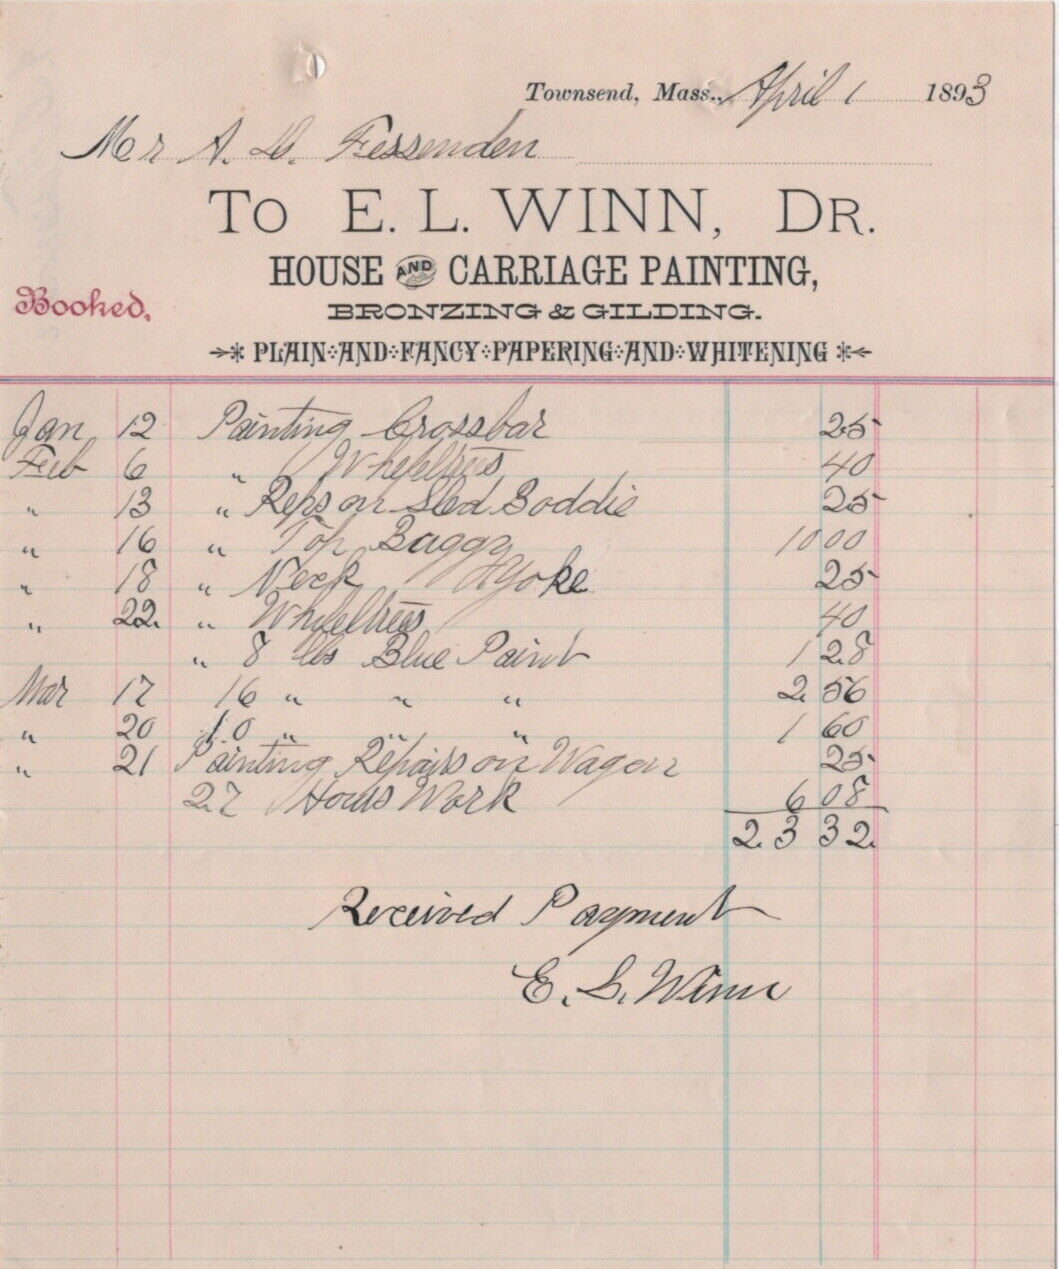 Townsend, Mass., April 1 1893
Mr A. D. Fessenden
To E. L. WINN, DR.
HOUSE AND CARRIAGE PAINTING,
Booked.
BRONZING & GILDING.
PLAIN AND FANCY PAPERING AND WHITENING
Jan 12 Painting Crossbar 25
Feb 6 " Whipltrees 40
" 13 " Reps on Sled Boddie 25
" 16 " Top Buggy 10 00
" 18 " Neck Yoke 25
" 22 " Whipeltrees 40
" 8 lbs Blue Paint 1 28
Mar 17 16 " " " 2 56
" 20 10 " " " 1 60
" 21 Painting Repairs on Wagon 25
27 Hours Work 6 08
23 32
Received Payment
E. L. Winn